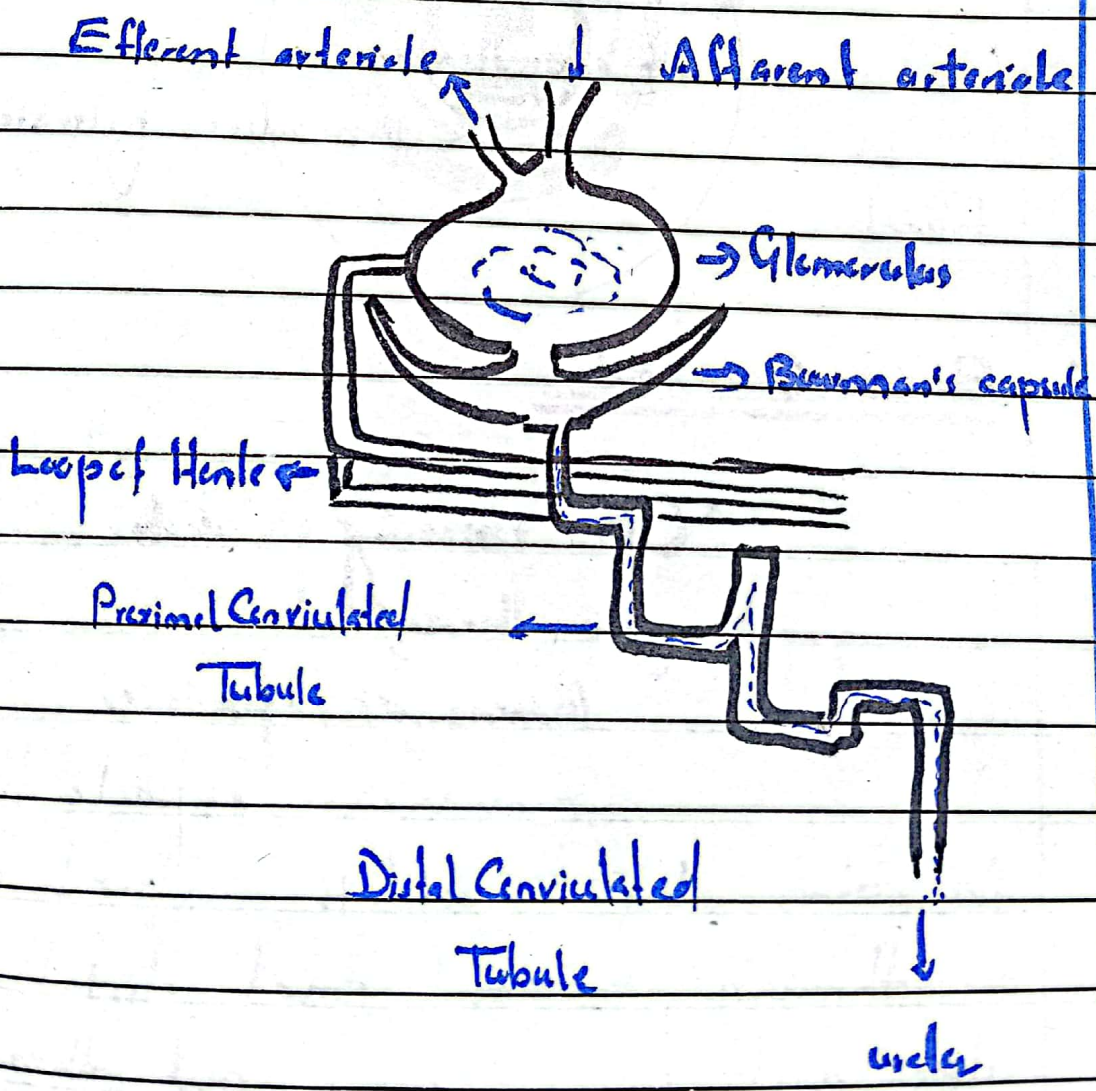 Efferent arteriole
Affarent arteriole
Glomerulus
Bowman's capsule
Loop of Henle
Proximal Conviulated
Tubule
Distal Conviulated
Tubule
ureter